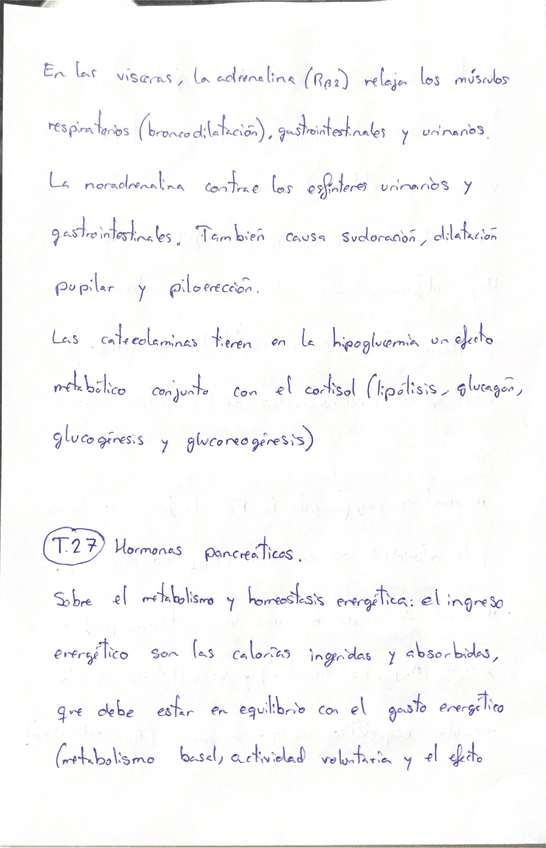 En las visceras, la adrenalina (Rβ2) relaja los músculos
respiratorios (broncodilatación), gastrointestinales y urinarios.
La noradrenalina contrae los esfínteres urinarios y
gastrointestinales. También causa sudoración, dilatación
pupilar y piloerección.
Las catecolaminas tienen en la hipoglucemia un efecto
metabólico conjunto con el cortisol (lipólisis, glucagón,
glucogénesis y gluconeogénesis)
T.27 Hormonas pancreáticas.
Sobre el metabolismo y homeostasis energética: el ingreso
energético son las calorías ingeridas y absorbidas,
que debe estar en equilibrio con el gasto energético
(metabolismo basal, actividad voluntaria y el efecto